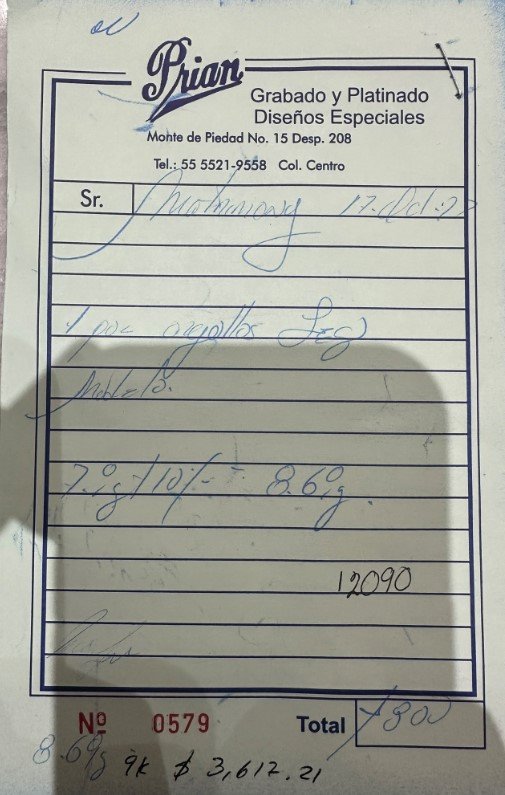 Prian
Grabado y Platinado
Diseños Especiales
Monte de Piedad No. 15 Desp. 208
Tel.: 55 5521-9558 Col. Centro
Sr.
1 par argollas Seg
Modelo.
8.6g.
12090
Nº 0579 Total
8.6g 9k $ 3,612.21